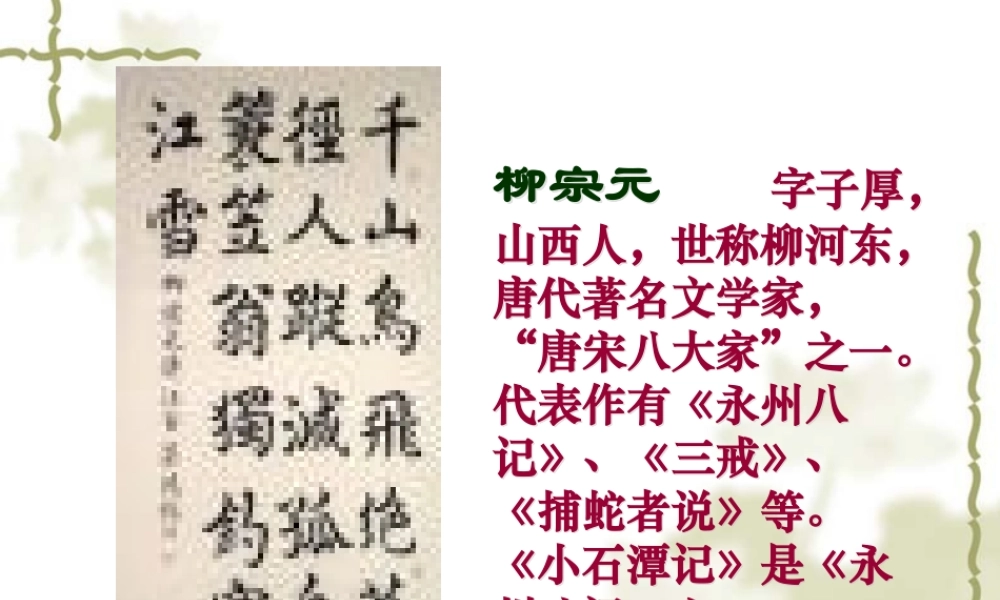 千山鳥飛絶
徑人蹤滅孤
蓑笠翁獨釣
江雪
柳宗元 字子厚，
山西人，世称柳河东，
唐代著名文学家，
“唐宋八大家”之一。
代表作有《永州八
记》、《三戒》、
《捕蛇者说》等。
《小石潭记》是《永